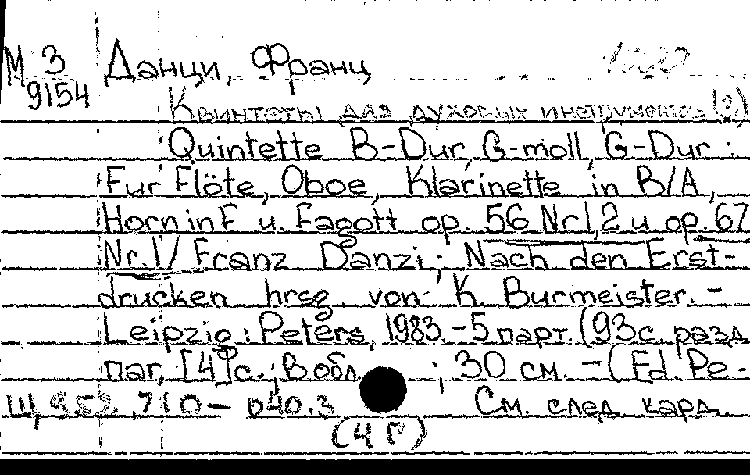 М 3 Данци, Франц
9154
Квинтеты для духовых инструментов (3)
Quintette B-Dur, G-moll, G-Dur :
Fur Flöte, Oboe, Klarinette in B/A,
Horn in F u. Fagott op. 56 Nr 1, 2 u op. 67
Nr. 1 / Franz Danzi; Nach den Erst-
drucken hrsg. von K. Burmeister. -
Leipzig : Peters, 1983. - 5 парт. (93 с. разд
паг, [4] с.; В обл. ; 30 см. - (Ed. Pe-
710 - 040.3 См. след. кард.
(4 Г)